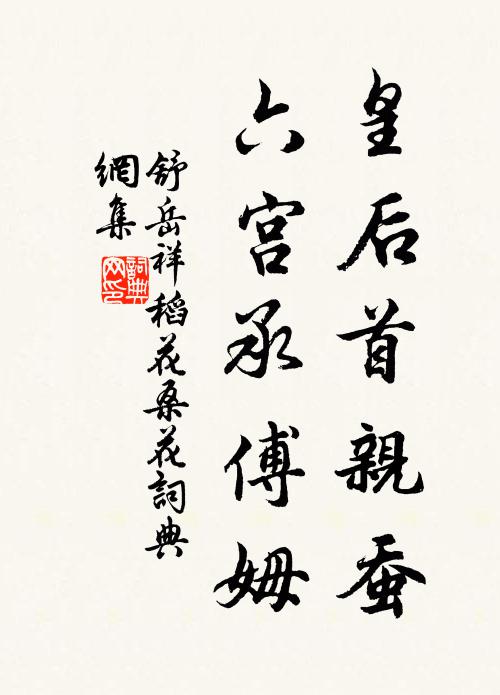 皇后首親蚕
六宮承傅姆
舒岳祥稻花桑花詞典
網集
詞典
网印